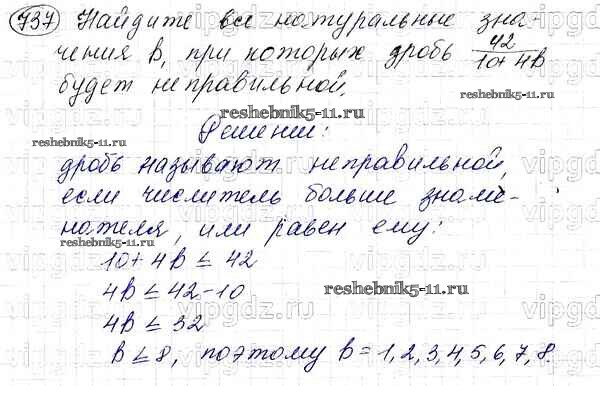 737 Найдите все натуральные зна-
чения b, при которых дробь 42/10+4b
будет неправильной.
reshebnik5-11.ru
Решение:
reshebnik5-11.ru
дробь называют неправильной,
если числитель больше знаме-
нателя, или равен ему:
reshebnik5-11.ru
10+4b ≤ 42
4b ≤ 42-10
reshebnik5-11.ru
4b ≤ 32
b ≤ 8, поэтому b = 1,2,3,4,5,6,7,8.
vipgdz.ru
vipgdz.ru
vipgdz.ru